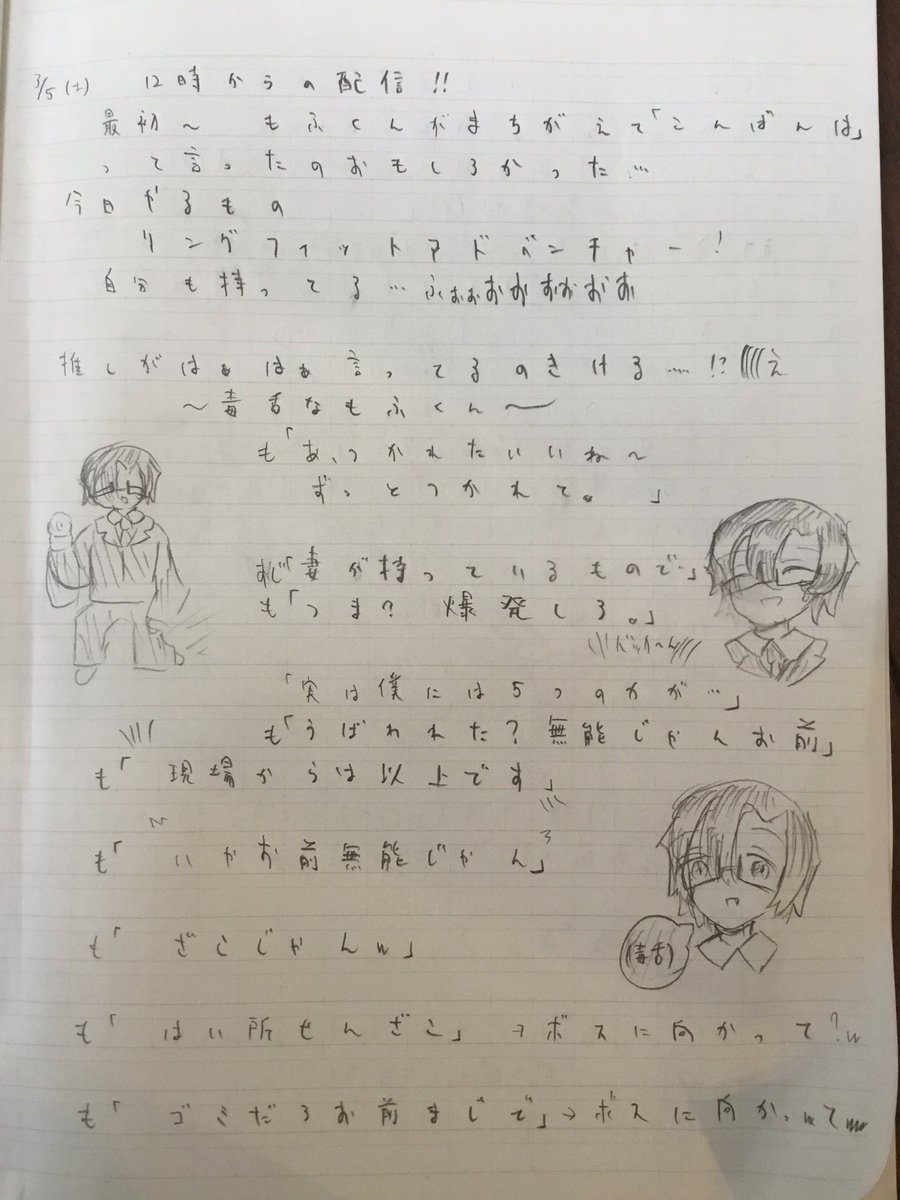 3/5(土) 12時からの配信!!
最初～ もふくんがまちがえて「こんばんは」
って言ったのおもしろかった…
今日やるもの
リングフィットアドベンチャー!
自分も持ってる…ふぉぉおおおおおお
推しがはぁはぁ言ってるのきける……!? え
～毒舌なもふくん～
も「あ、つかれたいいね～
ずっとつかれて。」
「妻が持っているもので」
も「つま? 爆発しろ。」
ドッカーン
「実は僕には5つのかが…」
も「うばわれた?無能じゃんお前」
も「現場からは以上です」
も「いやお前無能じゃん」
も「ざこじゃんw」
(毒舌)
も「はい所せんざこ」→ボスに向かって?w
も「ゴミだろお前まじで」→ボスに向かってww